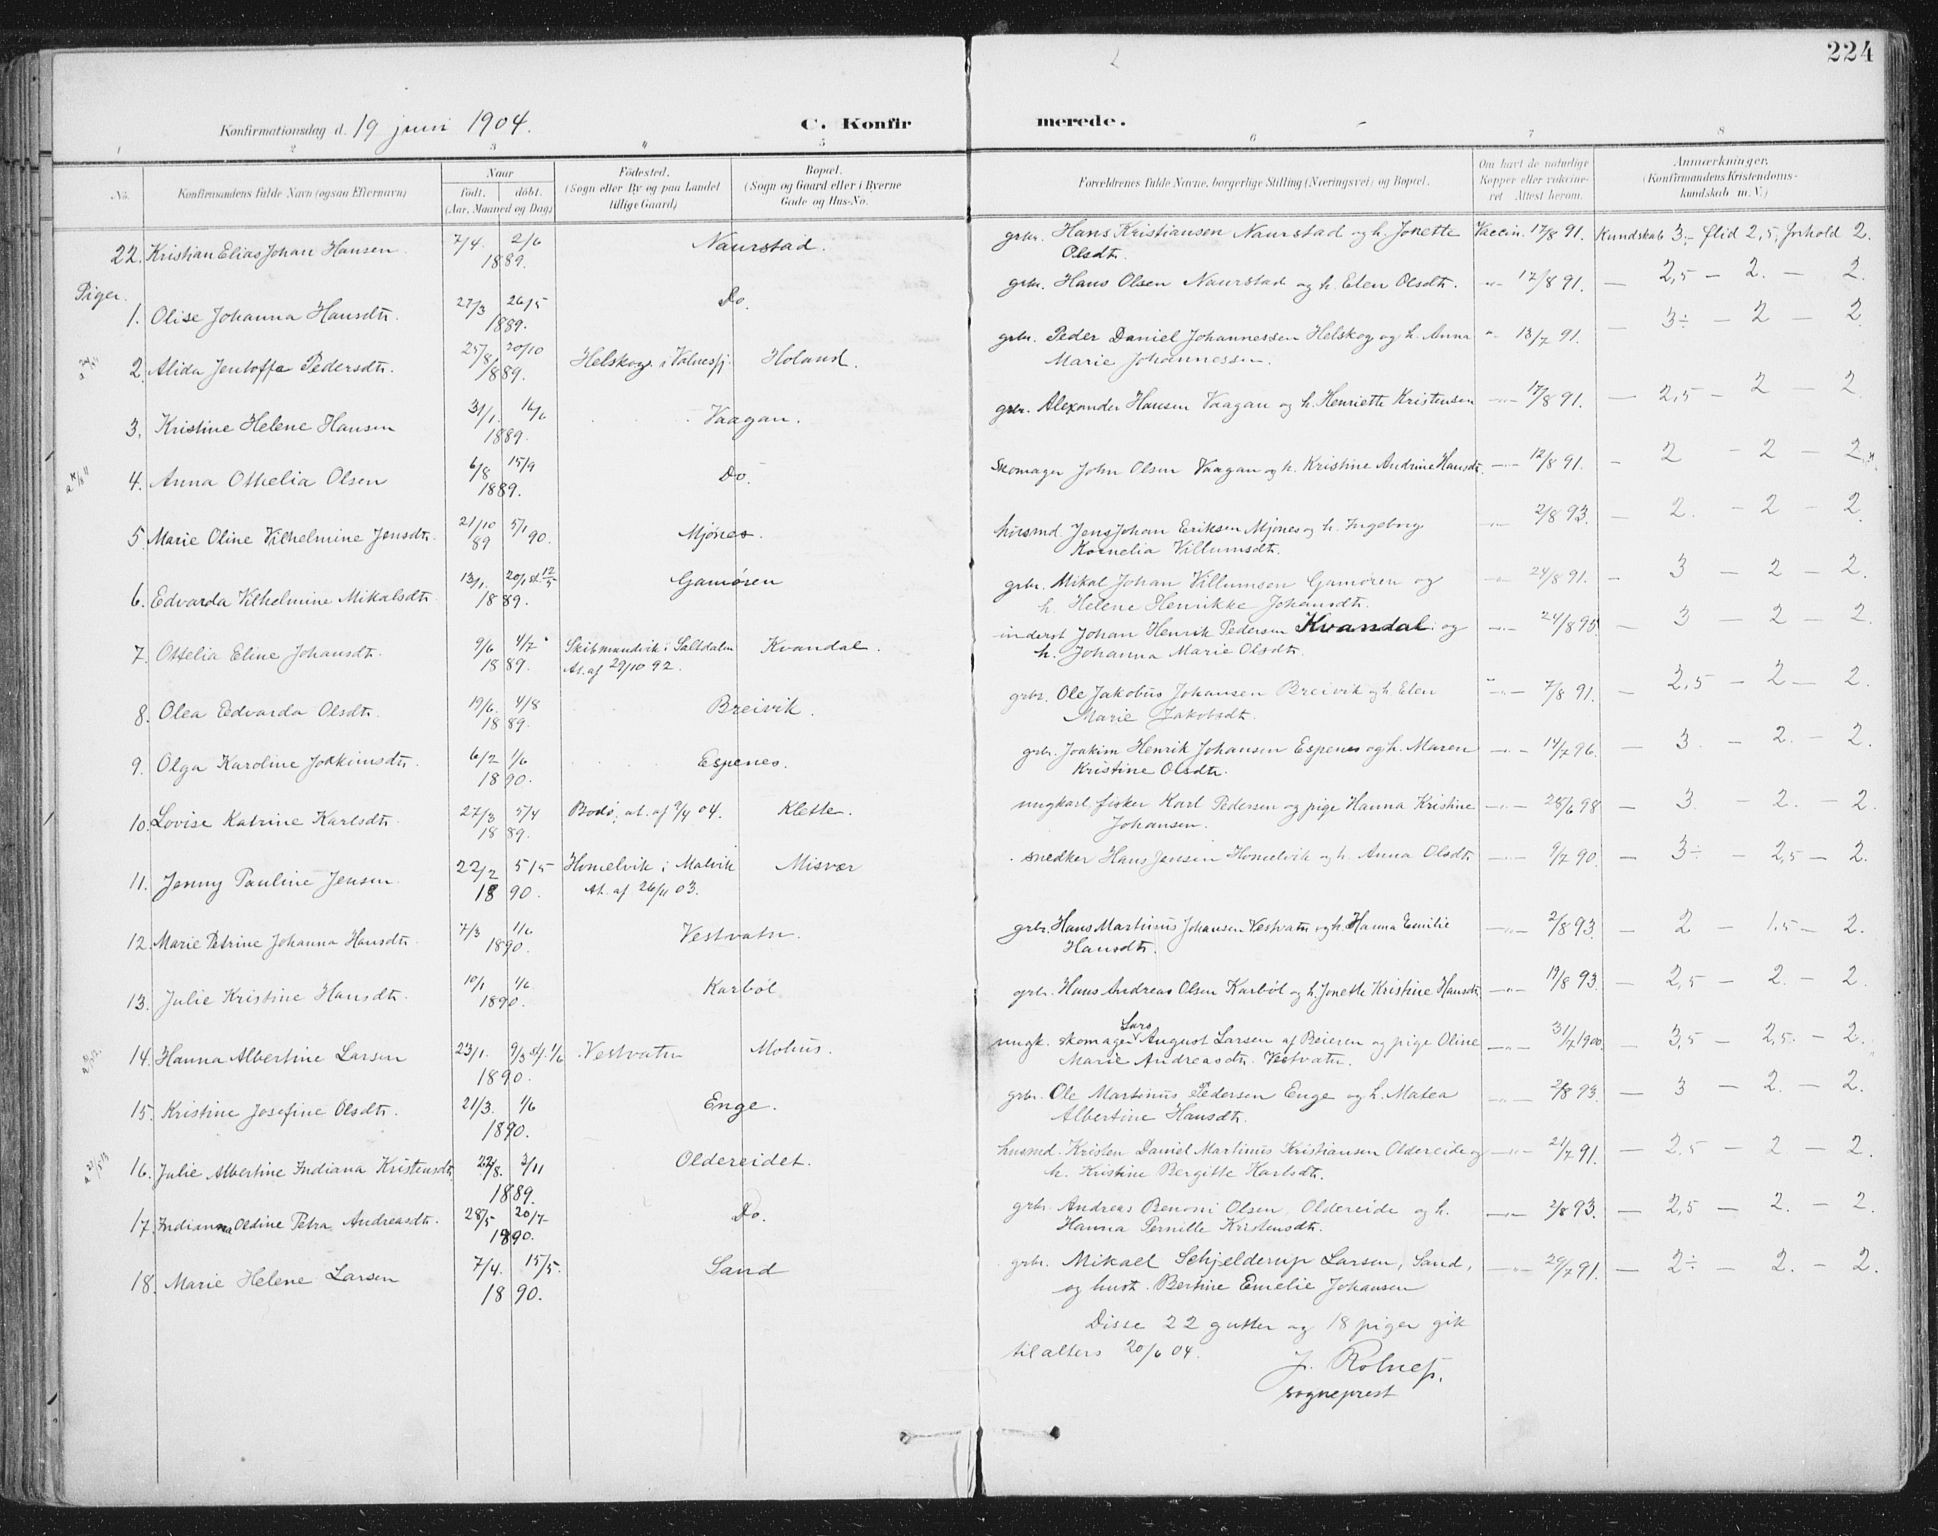 224
Konfirmationsdag d. 19 juni 1904.
C. Konfirmerede.
1 2 3 4 5 6 7 8
No. Konfirmandens fulde Navn (ogsaa Efternavn) Naar født. døbt. (Aar, Maaned og Dag) Fødested. (Sogn eller By og paa Landet tillige Gaard) Bopæl. (Sogn og Gaard eller i Byerne Gade og Hus-No. Forældrenes fulde Navne, borgerlige Stilling (Næringsvei) og Bopæl. Om havt de naturlige Kopper eller vakcineret Attest herom. Anmærkninger. (Konfirmandens Kristendomskundskab m. V.)
22. Kristian Elias Johan Hansen. 7/4. 2/6 1889. Naurstad. grbr. Hans Kristiansen Naurstad og h. Jonette Olsdtr. Vaccin. 17/8 91. Kundskab 3,- flid 2,5, forhold 2.
Piger.
1. Olise Johanna Hansdtr. 27/3 26/5 1889. Do. grbr. Hans Olsen Naurstad og h. Elen Olsdtr. -"- 17/8 91. — 2,5 — 2. — 2.
2. Alida Jentoffa Pedersdtr. 25/8 20/10 1889. Helskog i Valnesfj. Holand. grbr. Peder Daniel Johannessen Helskog og h. Anna Marie Johannessen. " 13/7 91. — 3÷ — 2 — 2
3. Kristine Helene Hansen 31/1. 16/6 1889. Vaagan. grbr. Alexander Hansen Vaagan og h. Henriette Kristensen -"- 17/8 91. — 2,5 — 2 — 2
4. Anna Othelia Olsen 6/8 15/9 1889. Do. Skomager John Olsen Vaagan og h. Kristine Andrine Hansdtr. -"- 12/8 91. — 2 — 2 — 2.
5. Marie Oline Vilhelmine Jensdtr. 21/10 89 5/1 90. Mjønes. husmd Jens Johan Eriksen Mjønes og h. Ingeborg Kornelia Villumsdtr. -"- 2/8 93. — 2. — 2 — 2
6. Edvarda Vilhelmine Mikalsdtr. 13/1. 20/1 st. 12/5 1889. Gamøren grbr. Mikal Johan Villumsen Gamøren og h. Helene Henrikke Johansdtr. -"- 24/8 91. — 3 — 2 — 2.
7. Othelia Eline Johansdtr. 9/6 4/7 1889. Skibmandvik i Saltdalen At. af 29/10 92. Kvandal. inderst Johan Henrik Pedersen Kvandal og h. Johanna Marie Olsdtr. -"- 24/8 95. — 3 — 2 — 2.
8. Olea Edvarda Olsdtr. 19/6. 4/8 1889. Breivik. grbr. Ole Jakobus Johansen Breivik og h. Elen Marie Jakobsdtr. -"- 7/8 91. — 2,5 — 2 — 2.
9. Olga Karoline Joakimsdtr. 6/2 1/6 1890. Espenes. grbr. Joakim Henrik Johansen Espenes og h. Maren Kristine Olsdtr. -"- 14/7 96. — 3. — 2. — 2.
10. Lovise Katrine Karlsdtr. 27/3 5/4 1889. Bodø, at. af 9/4 04. Klette. ungkarl fisker Karl Pedersen og pige Hanna Kristine Johansen. -"- 28/6 98 — 3. — 2. — 2.
11. Jenny Pauline Jensen. 22/2 5/5 1890. Homelvik i Malvik At. af 26/11 03. Misvær snedker Hans Jensen Homelvik og h. Anna Olsdtr. -"- 9/7 90. — 3÷ — 2,5 — 2.
12. Marie Petrine Johanna Hansdtr. 7/3 1/6 1890. Vestvatn. grbr. Hans Martinus Johansen Vestvatn og h. Hanna Emilie Hansdtr. -"- 2/8 93. — 2 — 1.5 — 2.
13. Julie Kristine Hansdtr. 10/1 1/6 1890. Karbøl grbr. Hans Andreas Olsen Karbøl og h. Jonette Kristine Hansdtr. -"- 19/8 93. — 2,5 — 2. — 2.
14. Hanna Albertine Larsen 23/1. 9/3 st. 1/6 1890. Vestvatn Mohus. ungk. skomager Lars August Larsen af Beieren og pige Oline Marie Andreasdtr. Vestvatn. -"- 31/7 1900. — 3,5 — 2,5. — 2.
15. Kristine Josefine Olsdtr. 21/3. 1/6 1890. Enge. grbr. Ole Martinus Pedersen Enge og h. Matea Albertine Hansdtr. -"- 2/8 93. — 3 — 2. — 2.
16. Julie Albertine Indiana Kristensdtr. 22/8. 3/11 1889. Oldereidet. husmd. Kristen Daniel Martinus Kristiansen Oldereide og h. Kristine Bergitte Karlsdtr. -"- 21/7 91. — 2,5 — 2 — 2.
17. Indianna Oldine Petra Andreasdtr. 28/5 20/7 1890. Do. grbr. Andreas Benoni Olsen, Oldereide og h. Hanna Pernille Kristensdtr. -"- 2/8 93. — 2,5 — 2. — 2.
18. Marie Helene Larsen 7/4. 15/5. 1890. Sand grbr. Mikael Schjelderup Larsen, Sand, og hust. Bertine Emelie Johansen -"- 29/7 91. — 2÷ — 2. — 2.
Disse 22 gutter og 18 piger gik
til alters 20/6 04.
J. Rolness,
sogneprest